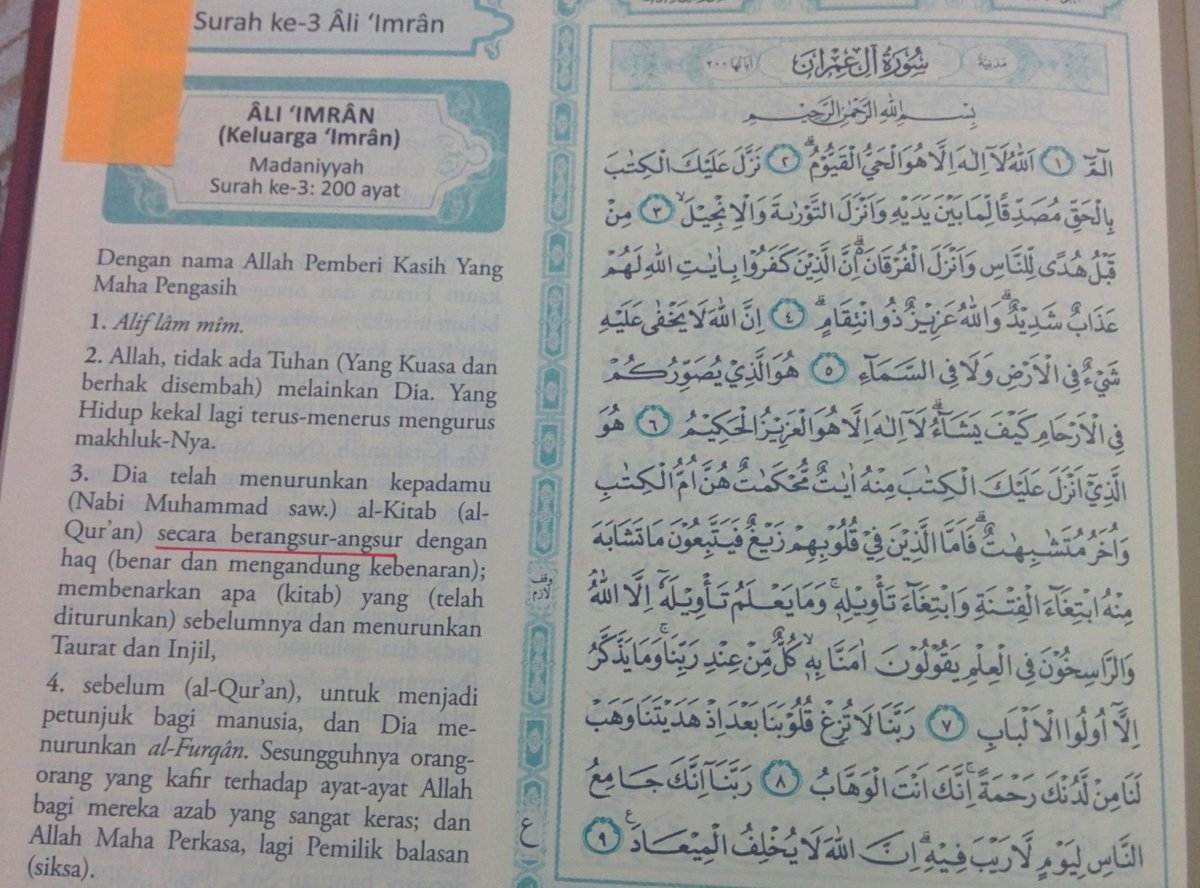 Surah ke-3 Âli ‘Imrân
ÂLI ‘IMRÂN
(Keluarga ‘Imrân)
Madaniyyah
Surah ke-3: 200 ayat
Dengan nama Allah Pemberi Kasih Yang
Maha Pengasih
1. Alif lâm mîm.
2. Allah, tidak ada Tuhan (Yang Kuasa dan
berhak disembah) melainkan Dia. Yang
Hidup kekal lagi terus-menerus mengurus
makhluk-Nya.
3. Dia telah menurunkan kepadamu
(Nabi Muhammad saw.) al-Kitab (al-
Qur’an) secara berangsur-angsur dengan
haq (benar dan mengandung kebenaran);
membenarkan apa (kitab) yang (telah
diturunkan) sebelumnya dan menurunkan
Taurat dan Injil,
4. sebelum (al-Qur’an), untuk menjadi
petunjuk bagi manusia, dan Dia me-
nurunkan al-Furqân. Sesungguhnya orang-
orang yang kafir terhadap ayat-ayat Allah
bagi mereka azab yang sangat keras; dan
Allah Maha Perkasa, lagi Pemilik balasan
(siksa).
مَدَنِيَّةٌ سُورَةُ آلِ عِمْرَانَ اٰيَاتُهَا ٢٠٠
بِسْمِ اللهِ الرَّحْمٰنِ الرَّحِيْمِ
الۤمّۤ ١ اَللهُ لَآ اِلٰهَ اِلَّا هُوَ الْحَيُّ الْقَيُّوْمُۗ ٢ نَزَّلَ عَلَيْكَ الْكِتٰبَ
بِالْحَقِّ مُصَدِّقًا لِّمَا بَيْنَ يَدَيْهِ وَاَنْزَلَ التَّوْرٰىةَ وَالْاِنْجِيْلَۙ ٣ مِنْ
قَبْلُ هُدًى لِّلنَّاسِ وَاَنْزَلَ الْفُرْقَانَەۗ اِنَّ الَّذِيْنَ كَفَرُوْا بِاٰيٰتِ اللهِ لَهُمْ
عَذَابٌ شَدِيْدٌۗ وَاللهُ عَزِيْزٌ ذُو انْتِقَامٍۗ ٤ اِنَّ اللهَ لَا يَخْفٰى عَلَيْهِ
شَيْءٌ فِى الْاَرْضِ وَلَا فِى السَّمَآءِ ٥ هُوَ الَّذِيْ يُصَوِّرُكُمْ
فِى الْاَرْحَامِ كَيْفَ يَشَآءُۗ لَآ اِلٰهَ اِلَّا هُوَ الْعَزِيْزُ الْحَكِيْمُ ٦ هُوَ
الَّذِيْٓ اَنْزَلَ عَلَيْكَ الْكِتٰبَ مِنْهُ اٰيٰتٌ مُّحْكَمٰتٌ هُنَّ اُمُّ الْكِتٰبِ
وَاُخَرُ مُتَشٰبِهٰتٌۗ فَاَمَّا الَّذِيْنَ فِيْ قُلُوْبِهِمْ زَيْغٌ فَيَتَّبِعُوْنَ مَا تَشَابَهَ
مِنْهُ ابْتِغَآءَ الْفِتْنَةِ وَابْتِغَآءَ تَأْوِيْلِهٖۚ وَمَا يَعْلَمُ تَأْوِيْلَهٗٓ اِلَّا اللهُ
وَالرَّاسِخُوْنَ فِى الْعِلْمِ يَقُوْلُوْنَ اٰمَنَّا بِهٖۙ كُلٌّ مِّنْ عِنْدِ رَبِّنَاۚ وَمَا يَذَّكَّرُ
اِلَّآ اُولُوا الْاَلْبَابِ ٧ رَبَّنَا لَا تُزِغْ قُلُوْبَنَا بَعْدَ اِذْ هَدَيْتَنَا وَهَبْ
لَنَا مِنْ لَّدُنْكَ رَحْمَةًۚ اِنَّكَ اَنْتَ الْوَهَّابُ ٨ رَبَّنَآ اِنَّكَ جَامِعُ
النَّاسِ لِيَوْمٍ لَّا رَيْبَ فِيْهِۗ اِنَّ اللهَ لَا يُخْلِفُ الْمِيْعَادَ ٩ ࣖ
وقف
لازم
ع